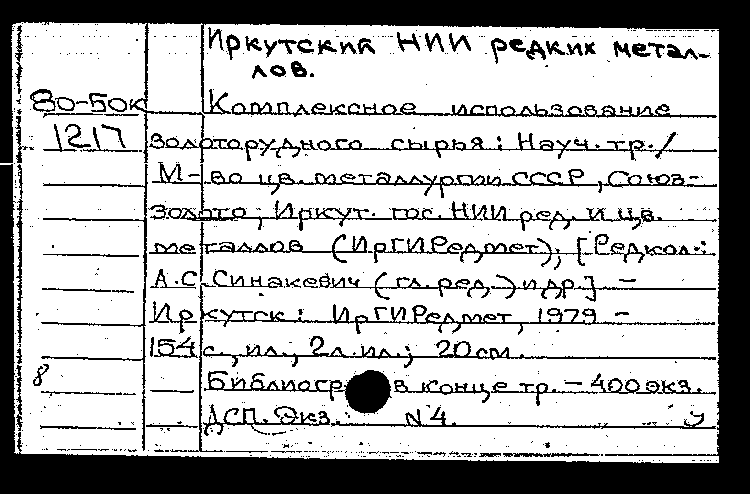 Иркутский НИИ редких метал-
лов.
80-50к Комплексное использование
1217 золоторудного сырья: Науч. тр./
М-во цв. металлургии СССР, Союз-
золото, Иркут. гос. НИИ ред. и цв.
металлов (ИрГИРедмет); [Редкол.:
А.С. Синакевич (гл. ред.) и др.] -
Иркутск: ИрГИРедмет, 1979 -
154 с., ил., 2л. ил.; 20см.
8 Библиогр в конце тр. - 400 экз.
ДСП. Экз. N 4.